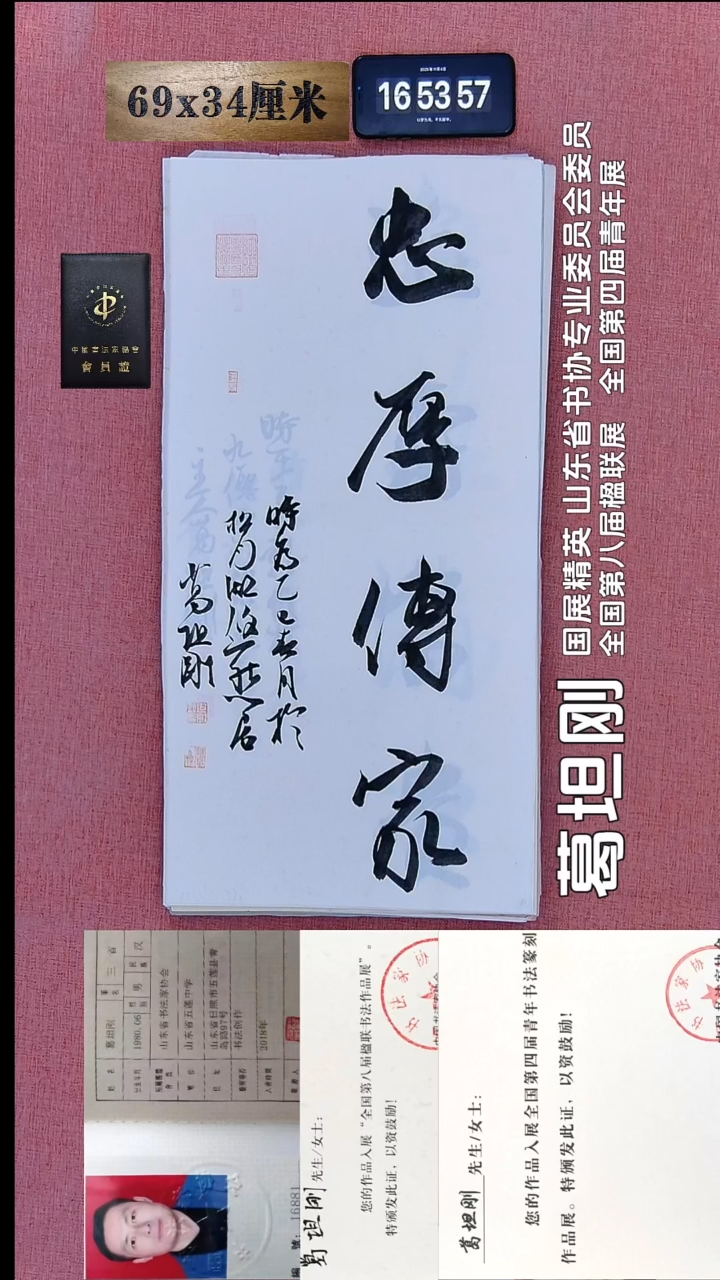 69x34厘米
2025年11月4日
16 53 57
忠厚傳家
時為乙巳春月於
松月湖佰熙居
葛坦剛
葛坦刚
国展精英 山东省书协专业委员会委员
全国第八届楹联展 全国第四届青年展
中国书法家协会
会员证
姓名 葛坦刚
出生年月 1980.06 性别 男 民族 汉
山东省书法家协会
山东省五莲中学
山东省日照市五莲县青
岛路97号
书法创作
入会时间 2018年
编号: 16881
葛坦刚 先生/女士:
您的作品入展“全国第八届楹联书法作品展”。
特颁发此证, 以资鼓励!
葛坦刚 先生/女士:
您的作品入展全国第四届青年书法篆刻
作品展。特颁发此证, 以资鼓励!